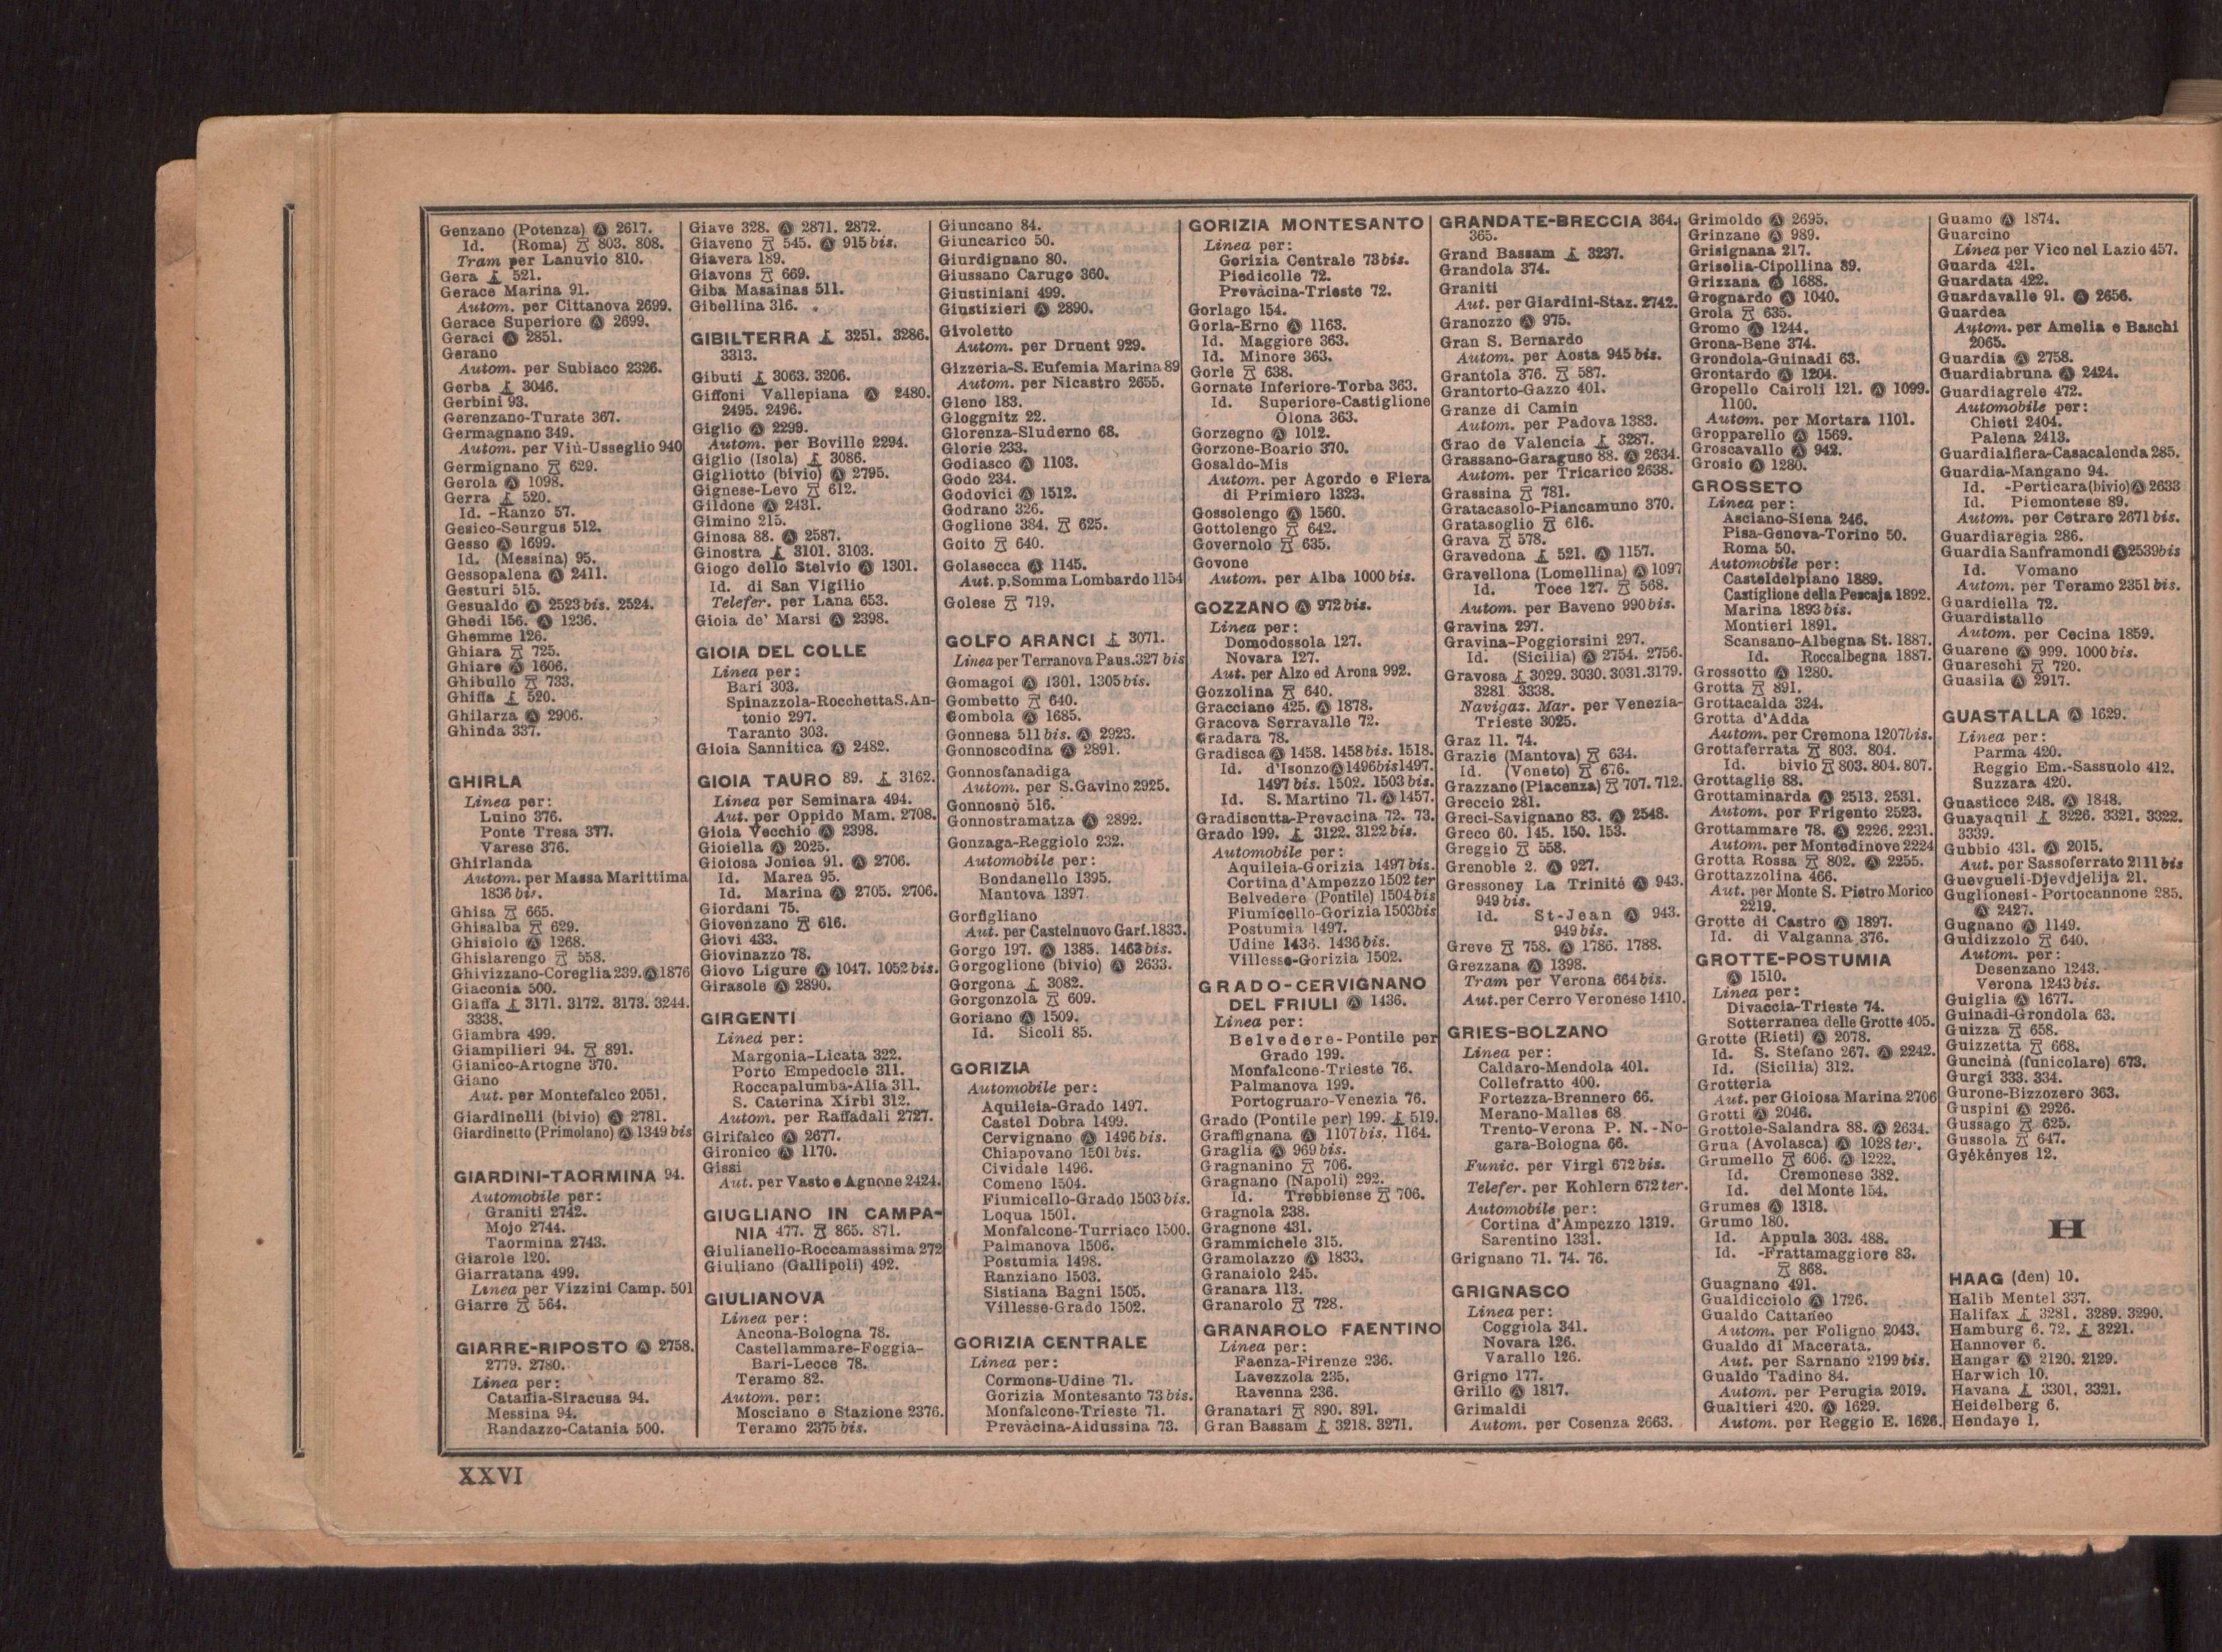 Genzano (Potenza) Ⓐ 2617.
Id. (Roma) 803. 808.
Tram per Lanuvio 810.
Gera 521.
Gerace Marina 91.
Autom. per Cittanova 2699.
Gerace Superiore Ⓐ 2699.
Geraci Ⓐ 2851.
Gerano
Autom. per Subiaco 2326.
Gerba 3046.
Gerbini 93.
Gerenzano-Turate 367.
Germagnano 349.
Autom. per Viù-Usseglio 940
Germignano 629.
Gerola Ⓐ 1098.
Gerra 520.
Id. -Ranzo 57.
Gesico-Seurgus 512.
Gesso Ⓐ 1699.
Id. (Messina) 95.
Gessopalena Ⓐ 2411.
Gesturi 515.
Gesualdo Ⓐ 2523 bis. 2524.
Ghedi 156. Ⓐ 1236.
Ghemme 126.
Ghiara 725.
Ghiare Ⓐ 1606.
Ghibullo 733.
Ghiffa 520.
Ghilarza Ⓐ 2906.
Ghinda 337.
GHIRLA
Linea per:
Luino 376.
Ponte Tresa 377.
Varese 376.
Ghirlanda
Autom. per Massa Marittima
1836 bis.
Ghisa 665.
Ghisalba 629.
Ghisiolo Ⓐ 1268.
Ghislarengo 558.
Ghivizzano-Coreglia 239. Ⓐ 1876
Giaconia 500.
Giaffa 3171. 3172. 3173. 3244.
3338.
Giambra 499.
Giampilieri 94. 891.
Gianico-Artogne 370.
Giano
Aut. per Montefalco 2051.
Giardinelli (bivio) Ⓐ 2781.
Giardinetto (Primolano) Ⓐ 1349 bis
GIARDINI-TAORMINA 94.
Automobile per:
Graniti 2742.
Mojo 2744.
Taormina 2743.
Giarole 120.
Giarratana 499.
Linea per Vizzini Camp. 501
Giarre 564.
GIARRE-RIPOSTO Ⓐ 2758.
2779. 2780.
Linea per:
Catania-Siracusa 94.
Messina 94.
Randazzo-Catania 500.
Giave 328. Ⓐ 2871. 2872.
Giaveno 545. Ⓐ 915 bis.
Giavera 189.
Giavons 669.
Giba Masainas 511.
Gibellina 316.
GIBILTERRA 3251. 3286.
3313.
Gibuti 3063. 3206.
Giffoni Vallepiana Ⓐ 2480.
2495. 2496.
Giglio Ⓐ 2299.
Autom. per Boville 2294.
Giglio (Isola) 3086.
Gigliotto (bivio) Ⓐ 2795.
Gignese-Levo 612.
Gildone Ⓐ 2431.
Gimino 215.
Ginosa 88. Ⓐ 2587.
Ginostra 3101. 3103.
Giogo dello Stelvio Ⓐ 1301.
Id. di San Vigilio
Telefer. per Lana 653.
Gioia de' Marsi Ⓐ 2398.
GIOIA DEL COLLE
Linea per:
Bari 303.
Spinazzola-Rocchetta S. An-
tonio 297.
Taranto 303.
Gioia Sannitica Ⓐ 2482.
GIOIA TAURO 89. 3162.
Linea per Seminara 494.
Aut. per Oppido Mam. 2708.
Gioia Vecchio Ⓐ 2398.
Gioiella Ⓐ 2025.
Gioiosa Jonica 91. Ⓐ 2706.
Id. Marea 95.
Id. Marina Ⓐ 2705. 2706.
Giordani 75.
Giovenzano 616.
Giovi 433.
Giovinazzo 78.
Giovo Ligure Ⓐ 1047. 1052 bis.
Girasole Ⓐ 2890.
GIRGENTI
Linea per:
Margonia-Licata 322.
Porto Empedocle 311.
Roccapalumba-Alia 311.
S. Caterina Xirbi 312.
Autom. per Raffadali 2727.
Girifalco Ⓐ 2677.
Gironico Ⓐ 1170.
Gissi
Aut. per Vasto e Agnone 2424.
GIUGLIANO IN CAMPA-
NIA 477. 865. 871.
Giulianello-Roccamassima 272
Giuliano (Gallipoli) 492.
GIULIANOVA
Linea per:
Ancona-Bologna 78.
Castellammare-Foggia-
Bari-Lecce 78.
Teramo 82.
Autom. per:
Mosciano e Stazione 2376.
Teramo 2375 bis.
Giuncano 84.
Giuncarico 50.
Giurdignano 80.
Giussano Carugo 360.
Giustiniani 499.
Giustizieri Ⓐ 2890.
Givoletto
Autom. per Druent 929.
Gizzeria-S. Eufemia Marina 89
Autom. per Nicastro 2655.
Gleno 183.
Gloggnitz 22.
Glorenza-Sluderno 68.
Glorie 233.
Godiasco Ⓐ 1103.
Godo 234.
Godovici Ⓐ 1512.
Godrano 326.
Goglione 384. 625.
Goito 640.
Golasecca Ⓐ 1145.
Aut. p. Somma Lombardo 1154
Golese 719.
GOLFO ARANCI 3071.
Linea per Terranova Paus. 327 bis
Gomagoi Ⓐ 1301. 1305 bis.
Gombetto 640.
Gombola Ⓐ 1685.
Gonnesa 511 bis. Ⓐ 2923.
Gonnoscodina Ⓐ 2891.
Gonnosfanadiga
Autom. per S. Gavino 2925.
Gonnosnò 516.
Gonnostramatza Ⓐ 2892.
Gonzaga-Reggiolo 232.
Automobile per:
Bondanello 1395.
Mantova 1397.
Gorfigliano
Aut. per Castelnuovo Garf. 1833.
Gorgo 197. Ⓐ 1385. 1463 bis.
Gorgoglione (bivio) Ⓐ 2633.
Gorgona 3082.
Gorgonzola 609.
Goriano Ⓐ 1509.
Id. Sicoli 85.
GORIZIA
Automobile per:
Aquileia-Grado 1497.
Castel Dobra 1499.
Cervignano Ⓐ 1496 bis.
Chiapovano 1501 bis.
Cividale 1496.
Comeno 1504.
Fiumicello-Grado 1503 bis.
Loqua 1501.
Monfalcone-Turriaco 1500.
Palmanova 1506.
Postumia 1498.
Ranziano 1503.
Sistiana Bagni 1505.
Villesse-Grado 1502.
GORIZIA CENTRALE
Linea per:
Cormons-Udine 71.
Gorizia Montesanto 73 bis.
Monfalcone-Trieste 71.
Prevàcina-Aidussina 73.
GORIZIA MONTESANTO
Linea per:
Gorizia Centrale 73 bis.
Piedicolle 72.
Prevàcina-Trieste 72.
Gorlago 154.
Gorla-Erno Ⓐ 1163.
Id. Maggiore 363.
Id. Minore 363.
Gorle 638.
Gornate Inferiore-Torba 363.
Id. Superiore-Castiglione
Olona 363.
Gorzegno Ⓐ 1012.
Gorzone-Boario 370.
Gosaldo-Mis
Autom. per Agordo e Fiera
di Primiero 1323.
Gossolengo Ⓐ 1560.
Gottolengo 642.
Governolo 635.
Govone
Autom. per Alba 1000 bis.
GOZZANO Ⓐ 972 bis.
Linea per:
Domodossola 127.
Novara 127.
Aut. per Alzo ed Arona 992.
Gozzolina 640.
Gracciano 425. Ⓐ 1878.
Gracova Serravalle 72.
Gradara 78.
Gradisca Ⓐ 1458. 1458 bis. 1518.
Id. d'Isonzo Ⓐ 1496 bis 1497.
1497 bis. 1502. 1503 bis.
Id. S. Martino 71. Ⓐ 1457.
Gradiscutta-Prevacina 72. 73.
Grado 199. 3122. 3122 bis.
Automobile per:
Aquileia-Gorizia 1497 bis.
Cortina d'Ampezzo 1502 ter
Belvedere (Pontile) 1504 bis
Fiumicello-Gorizia 1503 bis
Postumia 1497.
Udine 1436. 1436 bis.
Villesse-Gorizia 1502.
GRADO-CERVIGNANO
DEL FRIULI Ⓐ 1436.
Linea per:
Belvedere-Pontile per
Grado 199.
Monfalcone-Trieste 76.
Palmanova 199.
Portogruaro-Venezia 76.
Grado (Pontile per) 199. 519.
Graffignana Ⓐ 1107 bis. 1164.
Graglia Ⓐ 969 bis.
Gragnanino 706.
Gragnano (Napoli) 292.
Id. Trebbiense 706.
Gragnola 238.
Gragnone 431.
Grammichele 315.
Gramolazzo Ⓐ 1833.
Granaiolo 245.
Granara 113.
Granarolo 728.
GRANAROLO FAENTINO
Linea per:
Faenza-Firenze 236.
Lavezzola 235.
Ravenna 236.
Granatari 890. 891.
Gran Bassam 3218. 3271.
GRANDATE-BRECCIA 364.
365.
Grand Bassam 3237.
Grandola 374.
Graniti
Aut. per Giardini-Staz. 2742.
Granozzo Ⓐ 975.
Gran S. Bernardo
Autom. per Aosta 945 bis.
Grantola 376. 587.
Grantorto-Gazzo 401.
Granze di Camin
Autom. per Padova 1383.
Grao de Valencia 3287.
Grassano-Garaguso 88. Ⓐ 2634.
Autom. per Tricarico 2638.
Grassina 781.
Gratacasolo-Piancamuno 370.
Gratasoglio 616.
Grava 578.
Gravedona 521. Ⓐ 1157.
Gravellona (Lomellina) Ⓐ 1097
Id. Toce 127. 568.
Autom. per Baveno 990 bis.
Gravina 297.
Gravina-Poggiorsini 297.
Id. (Sicilia) Ⓐ 2754. 2756.
Gravosa 3029. 3030. 3031. 3179.
3281. 3338.
Navigaz. Mar. per Venezia-
Trieste 3025.
Graz 11. 74.
Grazie (Mantova) 634.
Id. (Veneto) 676.
Grazzano (Piacenza) 707. 712.
Greccio 281.
Greci-Savignano 83. Ⓐ 2548.
Greco 60. 145. 150. 153.
Greggio 558.
Grenoble 2. Ⓐ 927.
Gressoney La Trinité Ⓐ 943.
949 bis.
Id. St-Jean Ⓐ 943.
949 bis.
Greve 758. Ⓐ 1786. 1788.
Grezzana Ⓐ 1398.
Tram per Verona 664 bis.
Aut. per Cerro Veronese 1410.
GRIES-BOLZANO
Linea per:
Caldaro-Mendola 401.
Collefratto 400.
Fortezza-Brennero 66.
Merano-Malles 68.
Trento-Verona P. N.-No-
gara-Bologna 66.
Funic. per Virgl 672 bis.
Telefer. per Kohlern 672 ter.
Automobile per:
Cortina d'Ampezzo 1319.
Sarentino 1331.
Grignano 71. 74. 76.
GRIGNASCO
Linea per:
Coggiola 341.
Novara 126.
Varallo 126.
Grigno 177.
Grillo Ⓐ 1817.
Grimaldi
Autom. per Cosenza 2663.
Grimoldo Ⓐ 2695.
Grinzane Ⓐ 989.
Grisignana 217.
Grisolia-Cipollina 89.
Grizzana Ⓐ 1688.
Grognardo Ⓐ 1040.
Grola 635.
Gromo Ⓐ 1244.
Grona-Bene 374.
Grondola-Guinadi 63.
Grontardo Ⓐ 1204.
Gropello Cairoli 121. Ⓐ 1099.
1100.
Autom. per Mortara 1101.
Gropparello Ⓐ 1569.
Groscavallo Ⓐ 942.
Grosio Ⓐ 1280.
GROSSETO
Linea per:
Asciano-Siena 246.
Pisa-Genova-Torino 50.
Roma 50.
Automobile per:
Casteldelpiano 1889.
Castiglione della Pescaja 1892.
Marina 1893 bis.
Montieri 1891.
Scansano-Albegna St. 1887.
Id. Roccalbegna 1887.
Grossotto Ⓐ 1280.
Grotta 891.
Grottacalda 324.
Grotta d'Adda
Autom. per Cremona 1207 bis.
Grottaferrata 803. 804.
Id. bivio 803. 804. 807.
Grottaglie 88.
Grottaminarda Ⓐ 2513. 2531.
Autom. per Frigento 2523.
Grottammare 78. Ⓐ 2226. 2231.
Autom. per Montedinove 2224
Grotta Rossa 802. Ⓐ 2255.
Grottazzolina 466.
Aut. per Monte S. Pietro Morico
2219.
Grotte di Castro Ⓐ 1897.
Id. di Valganna 376.
GROTTE-POSTUMIA
Ⓐ 1510.
Linea per:
Divaccia-Trieste 74.
Sotterranea delle Grotte 405.
Grotte (Rieti) Ⓐ 2078.
Id. S. Stefano 267. Ⓐ 2242.
Id. (Sicilia) 312.
Grotteria
Aut. per Gioiosa Marina 2706
Grotti Ⓐ 2046.
Grottole-Salandra 88. Ⓐ 2634.
Grua (Avolasca) Ⓐ 1028 ter.
Grumello 606. Ⓐ 1222.
Id. Cremonese 382.
Id. del Monte 154.
Grumes Ⓐ 1318.
Grumo 180.
Id. Appula 303. 488.
Id. -Frattamaggiore 83.
868.
Guagnano 491.
Gualdicciolo Ⓐ 1726.
Gualdo Cattaneo
Autom. per Foligno 2043.
Gualdo di Macerata.
Aut. per Sarnano 2199 bis.
Gualdo Tadino 84.
Autom. per Perugia 2019.
Gualtieri 420. Ⓐ 1629.
Autom. per Reggio E. 1626.
Guamo Ⓐ 1874.
Guarcino
Linea per Vico nel Lazio 457.
Guarda 421.
Guardata 422.
Guardavalle 91. Ⓐ 2656.
Guardea
Autom. per Amelia e Baschi
2065.
Guardia Ⓐ 2758.
Guardiabruna Ⓐ 2424.
Guardiagrele 472.
Automobile per:
Chieti 2404.
Palena 2413.
Guardialfiera-Casacalenda 285.
Guardia-Mangano 94.
Id. -Perticara (bivio) Ⓐ 2633
Id. Piemontese 89.
Autom. per Cetraro 2671 bis.
Guardiaregia 286.
Guardia Sanframondi Ⓐ 2539 bis
Id. Vomano
Autom. per Teramo 2351 bis.
Guardiella 72.
Guardistallo
Autom. per Cecina 1859.
Guarene Ⓐ 999. 1000 bis.
Guareschi 720.
Guasila Ⓐ 2917.
GUASTALLA Ⓐ 1629.
Linea per:
Parma 420.
Reggio Em.-Sassuolo 412.
Suzzara 420.
Guasticce 248. Ⓐ 1848.
Guayaquil 3226. 3321. 3322.
3339.
Gubbio 431. Ⓐ 2015.
Aut. per Sassoferrato 2111 bis
Guevgueli-Djevdjelija 21.
Guglionesi-Portocannone 285.
Ⓐ 2427.
Gugnano Ⓐ 1149.
Guidizzolo 640.
Autom. per:
Desenzano 1243.
Verona 1243 bis.
Guiglia Ⓐ 1677.
Guinadi-Grondola 63.
Guizza 658.
Guizzetta 668.
Guncinà (funicolare) 673.
Gurgi 333. 334.
Gurone-Bizzozero 363.
Guspini Ⓐ 2926.
Gussago 625.
Gussola 647.
Gyékényes 12.
H
HAAG (den) 10.
Halib Mentel 337.
Halifax 3281. 3289. 3290.
Hamburg 6. 72. 3221.
Hannover 6.
Hangar Ⓐ 2120. 2129.
Harwich 10.
Havana 3301. 3321.
Heidelberg 6.
Hendaye 1.
XXVI